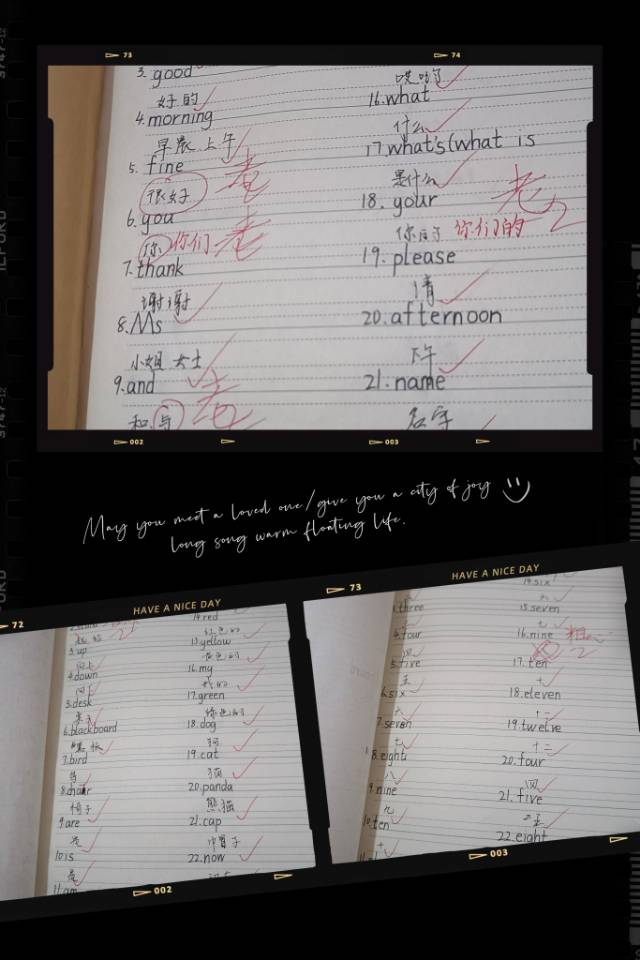 73
74
3. good
好的
4. morning
早晨 上午
5. fine
很好
老
6. you
你 你们
老
7. thank
谢谢
8. Ms
小姐 女士
9. and
老
和 与
16. what
什么
17. what's (what is
是什么
18. your
老2
你们的
19. please
请
20. afternoon
下午
21. name
名字
002
003
May you meet a loved one/give you a city of joy
long song warm floating life.
72
HAVE A NICE DAY
3. up
4. down
5. desk
6. blackboard
7. bird
8. chair
椅子
9. are
是
10. is
是
11. am
14. red
红色的
15. yellow
黄色的
16. my
我的
17. green
绿色的
18. dog
狗
19. cat
猫
20. panda
熊猫
21. cap
帽子
22. now
002
73
HAVE A NICE DAY
three
four
四
5. five
五
6. six
六
7. seven
七
8. eight
八
9. nine
九
10. ten
十
14. six
15. seven
七
16. nine
粗心
2
17. ten
十
18. eleven
十一
19. twelve
十二
20. four
四
21. five
五
22. eight
003
ILFORD